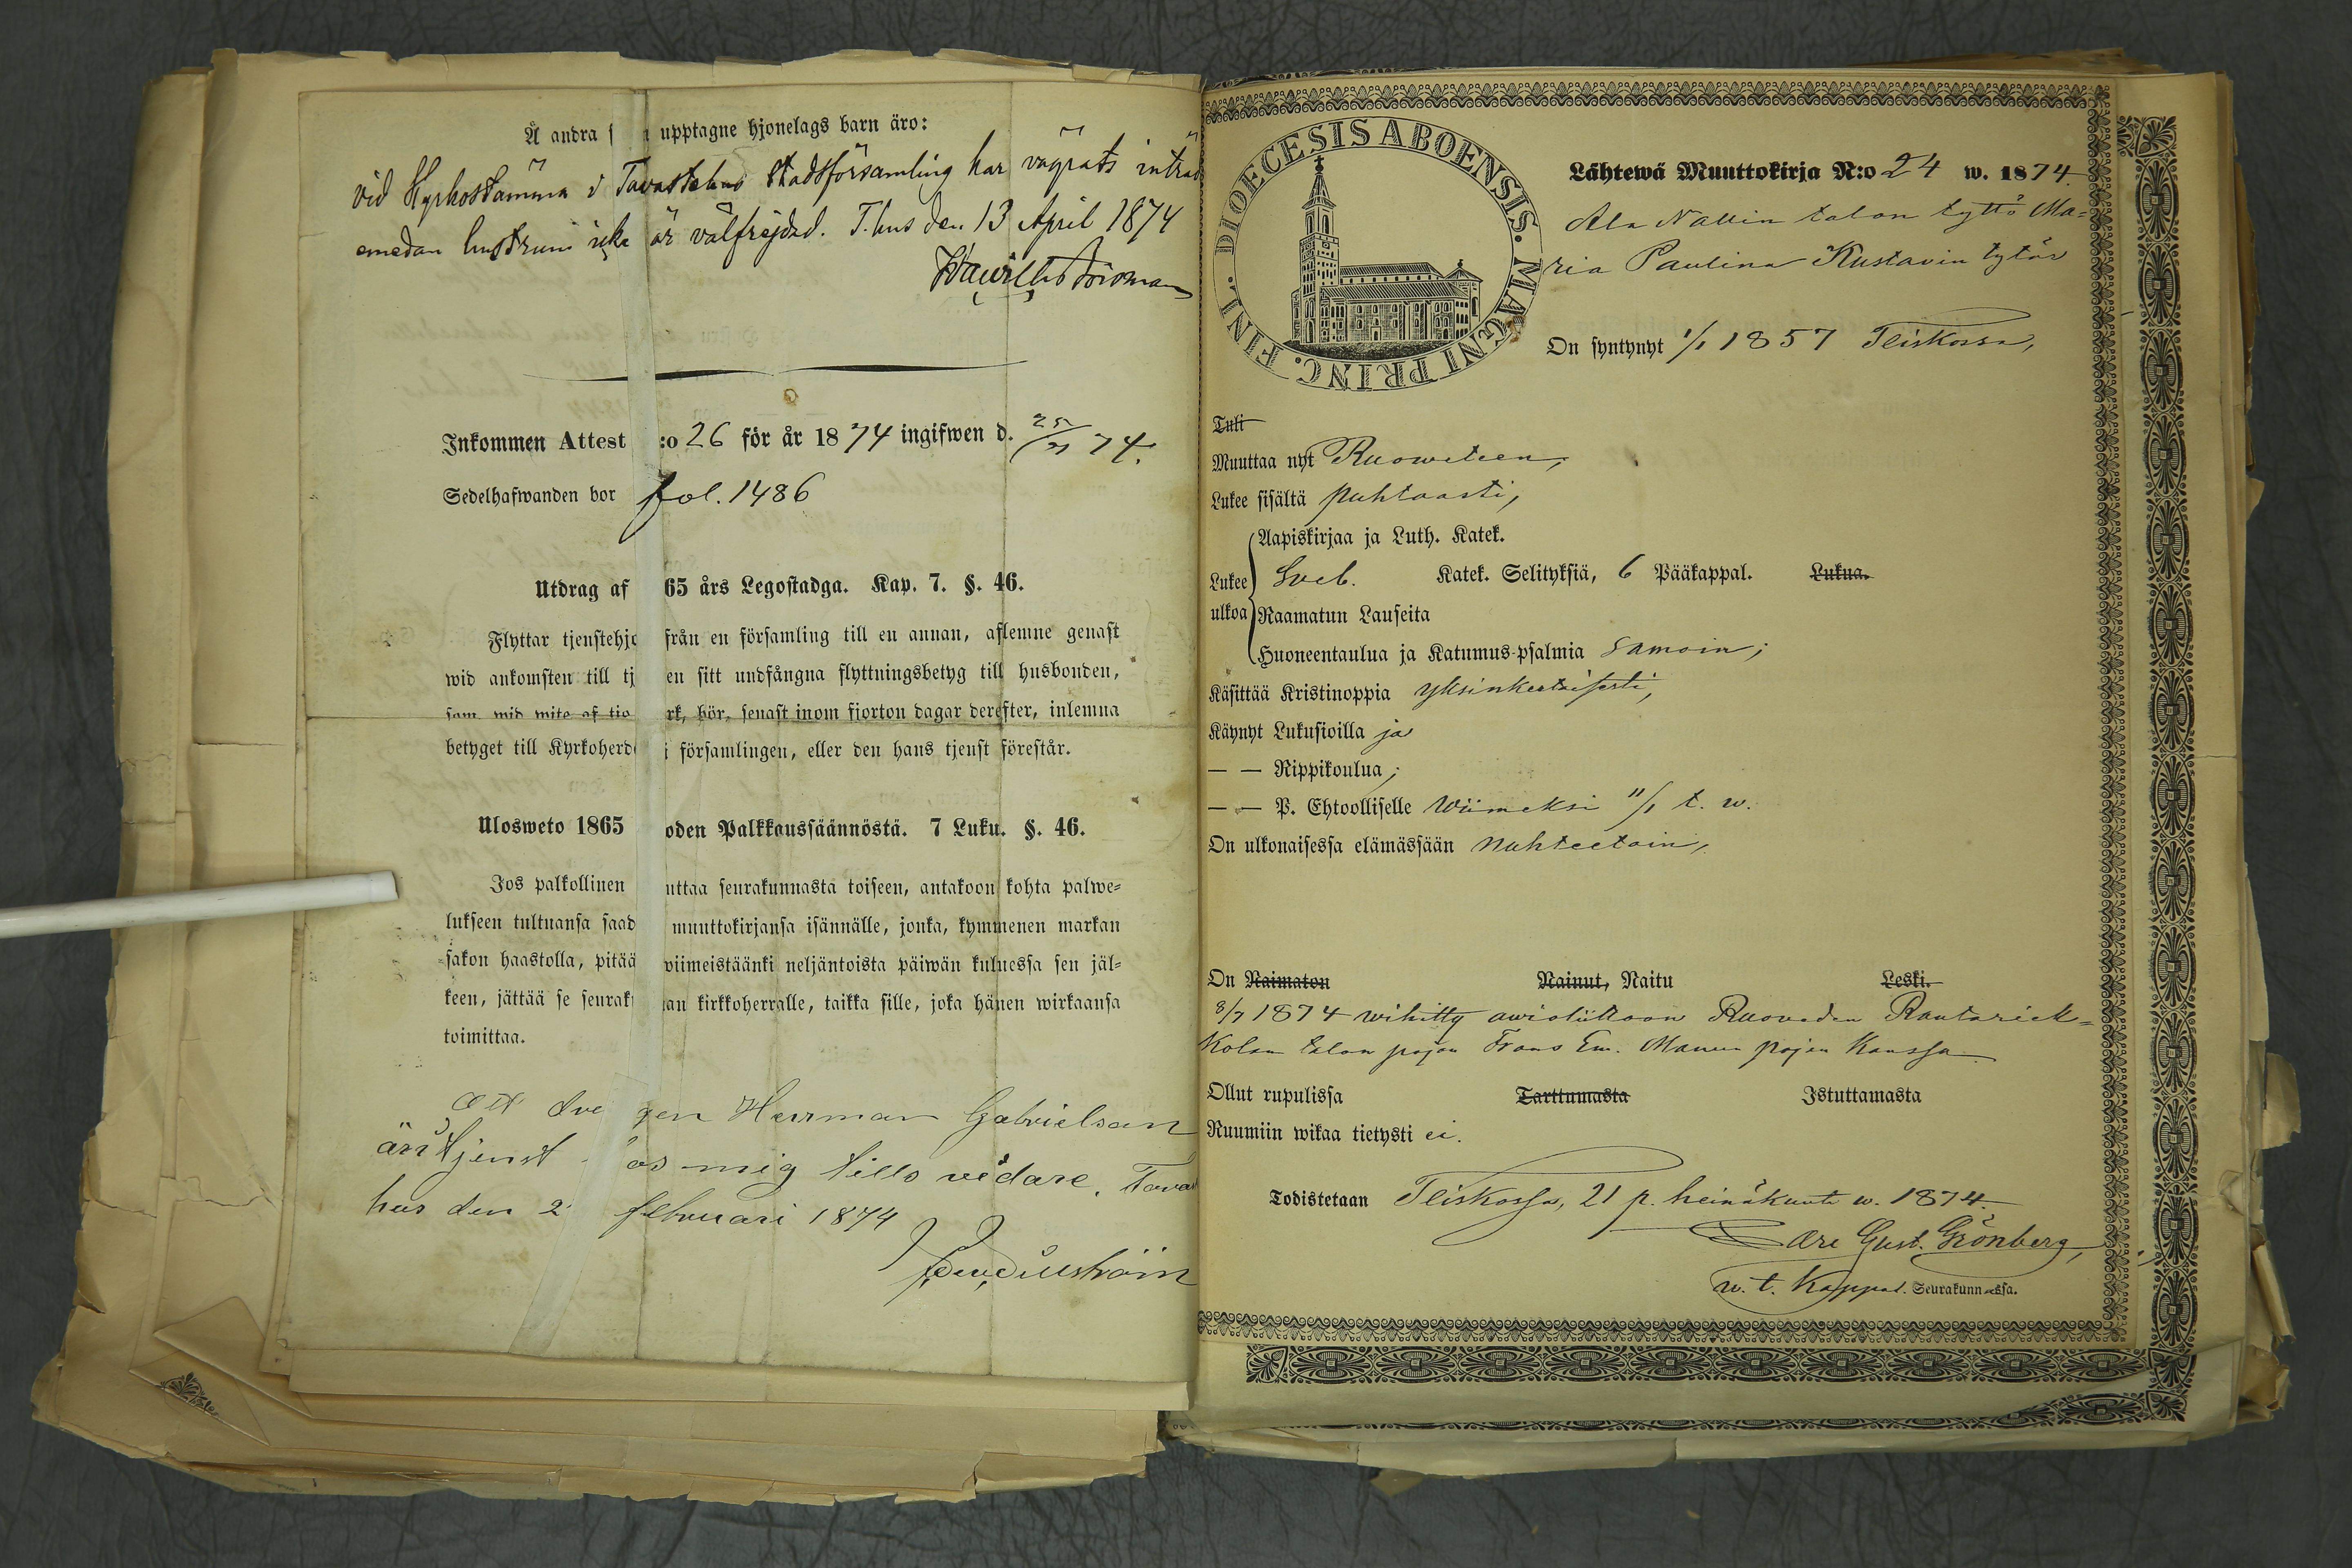 Å andra s upptagne hjonelags barn äro:
vid Kyrkostämma i Tavastehus Stadsförsamling har vägrats inträd
emedan hustrun icke är välfrejdad. T.hus den 13 April 1874
Inkommen Attest :o 26 för år 1874 ingifwen d. 74.
Sedelhafwanden bor fol. 1486
Utdrag af 65 års Legostadga. Kap. 7. §. 46.
Flyttar tjenstehjo från en församling till en annan, aflemne genast
wid ankomsten till tj en sitt undfångna flyttningsbetyg till husbonden,
som, wid wite af tio rk, bör, senast inom fjorton dagar derefter, inlemna
betyget till Kyrkoherde i församlingen, eller den hans tjenst förestår.
Ulosweto 1865 oden Palkkaussäännöstä. 7 Luku. §. 46.
Jos palkollinen uttaa seurakunnasta toiseen, antakoon kohta palwe-
lukseen tultuansa saad muuttokirjansa isännälle, jonka, kymmenen markan
sakon haastolla, pitää wiimeistäänki neljäntoista päiwän kuluessa sen jäl-
keen, jättää se seurak an kirkkoherralle, taikka sille, joka hänen wirkaansa
toimittaa.
Att dre gen Herrman Gabrielsson
är i tjenst os mig tills vidare. Tava
hus den 2 februari 1874
DIOECESIS ABOENSIS. MAGNI PRINC. FINL.
Lähtewä Muuttokirja N:o 24 w. 1874.
Ala Nallin talon tyttö Ma-
ria Paulina Kustavin tytär
On syntynyt 1/1 1857 Teiskossa,
Tuli
Muuttaa nyt Ruoweteen,
Lukee sisältä puhtaasti,
Aapiskirjaa ja Luth. Katek.
Lukee Sveb. Katek. Selityksiä, 6 Pääkappal. Lukua.
ulkoa Raamatun Lauseita
Huoneentaulua ja Katumus-psalmia samoin;
Käsittää Kristinoppia yksinkertaisesti,
Käynyt Lukusioilla ja
— — Rippikoulua;
— — P. Ehtoolliselle Wiimeksi 11/1 t. w.
On ulkonaisessa elämässään nuhteetoin,
On Naimaton Nainut, Naitu Leski.
8/7 1874 wihitty awioliittoon Ruoveden Rautarick-
kolan talon pojan Frans Em. Manun pojan kanssa
Ollut rupulissa Tarttumasta Istuttamasta
Ruumiin wikaa tietysti ei.
Todistetaan Teiskossa, 21 p. heinäkuuta w. 1874.
Gust. Grönberg,
w. t. Kappal. Seurakunnassa.